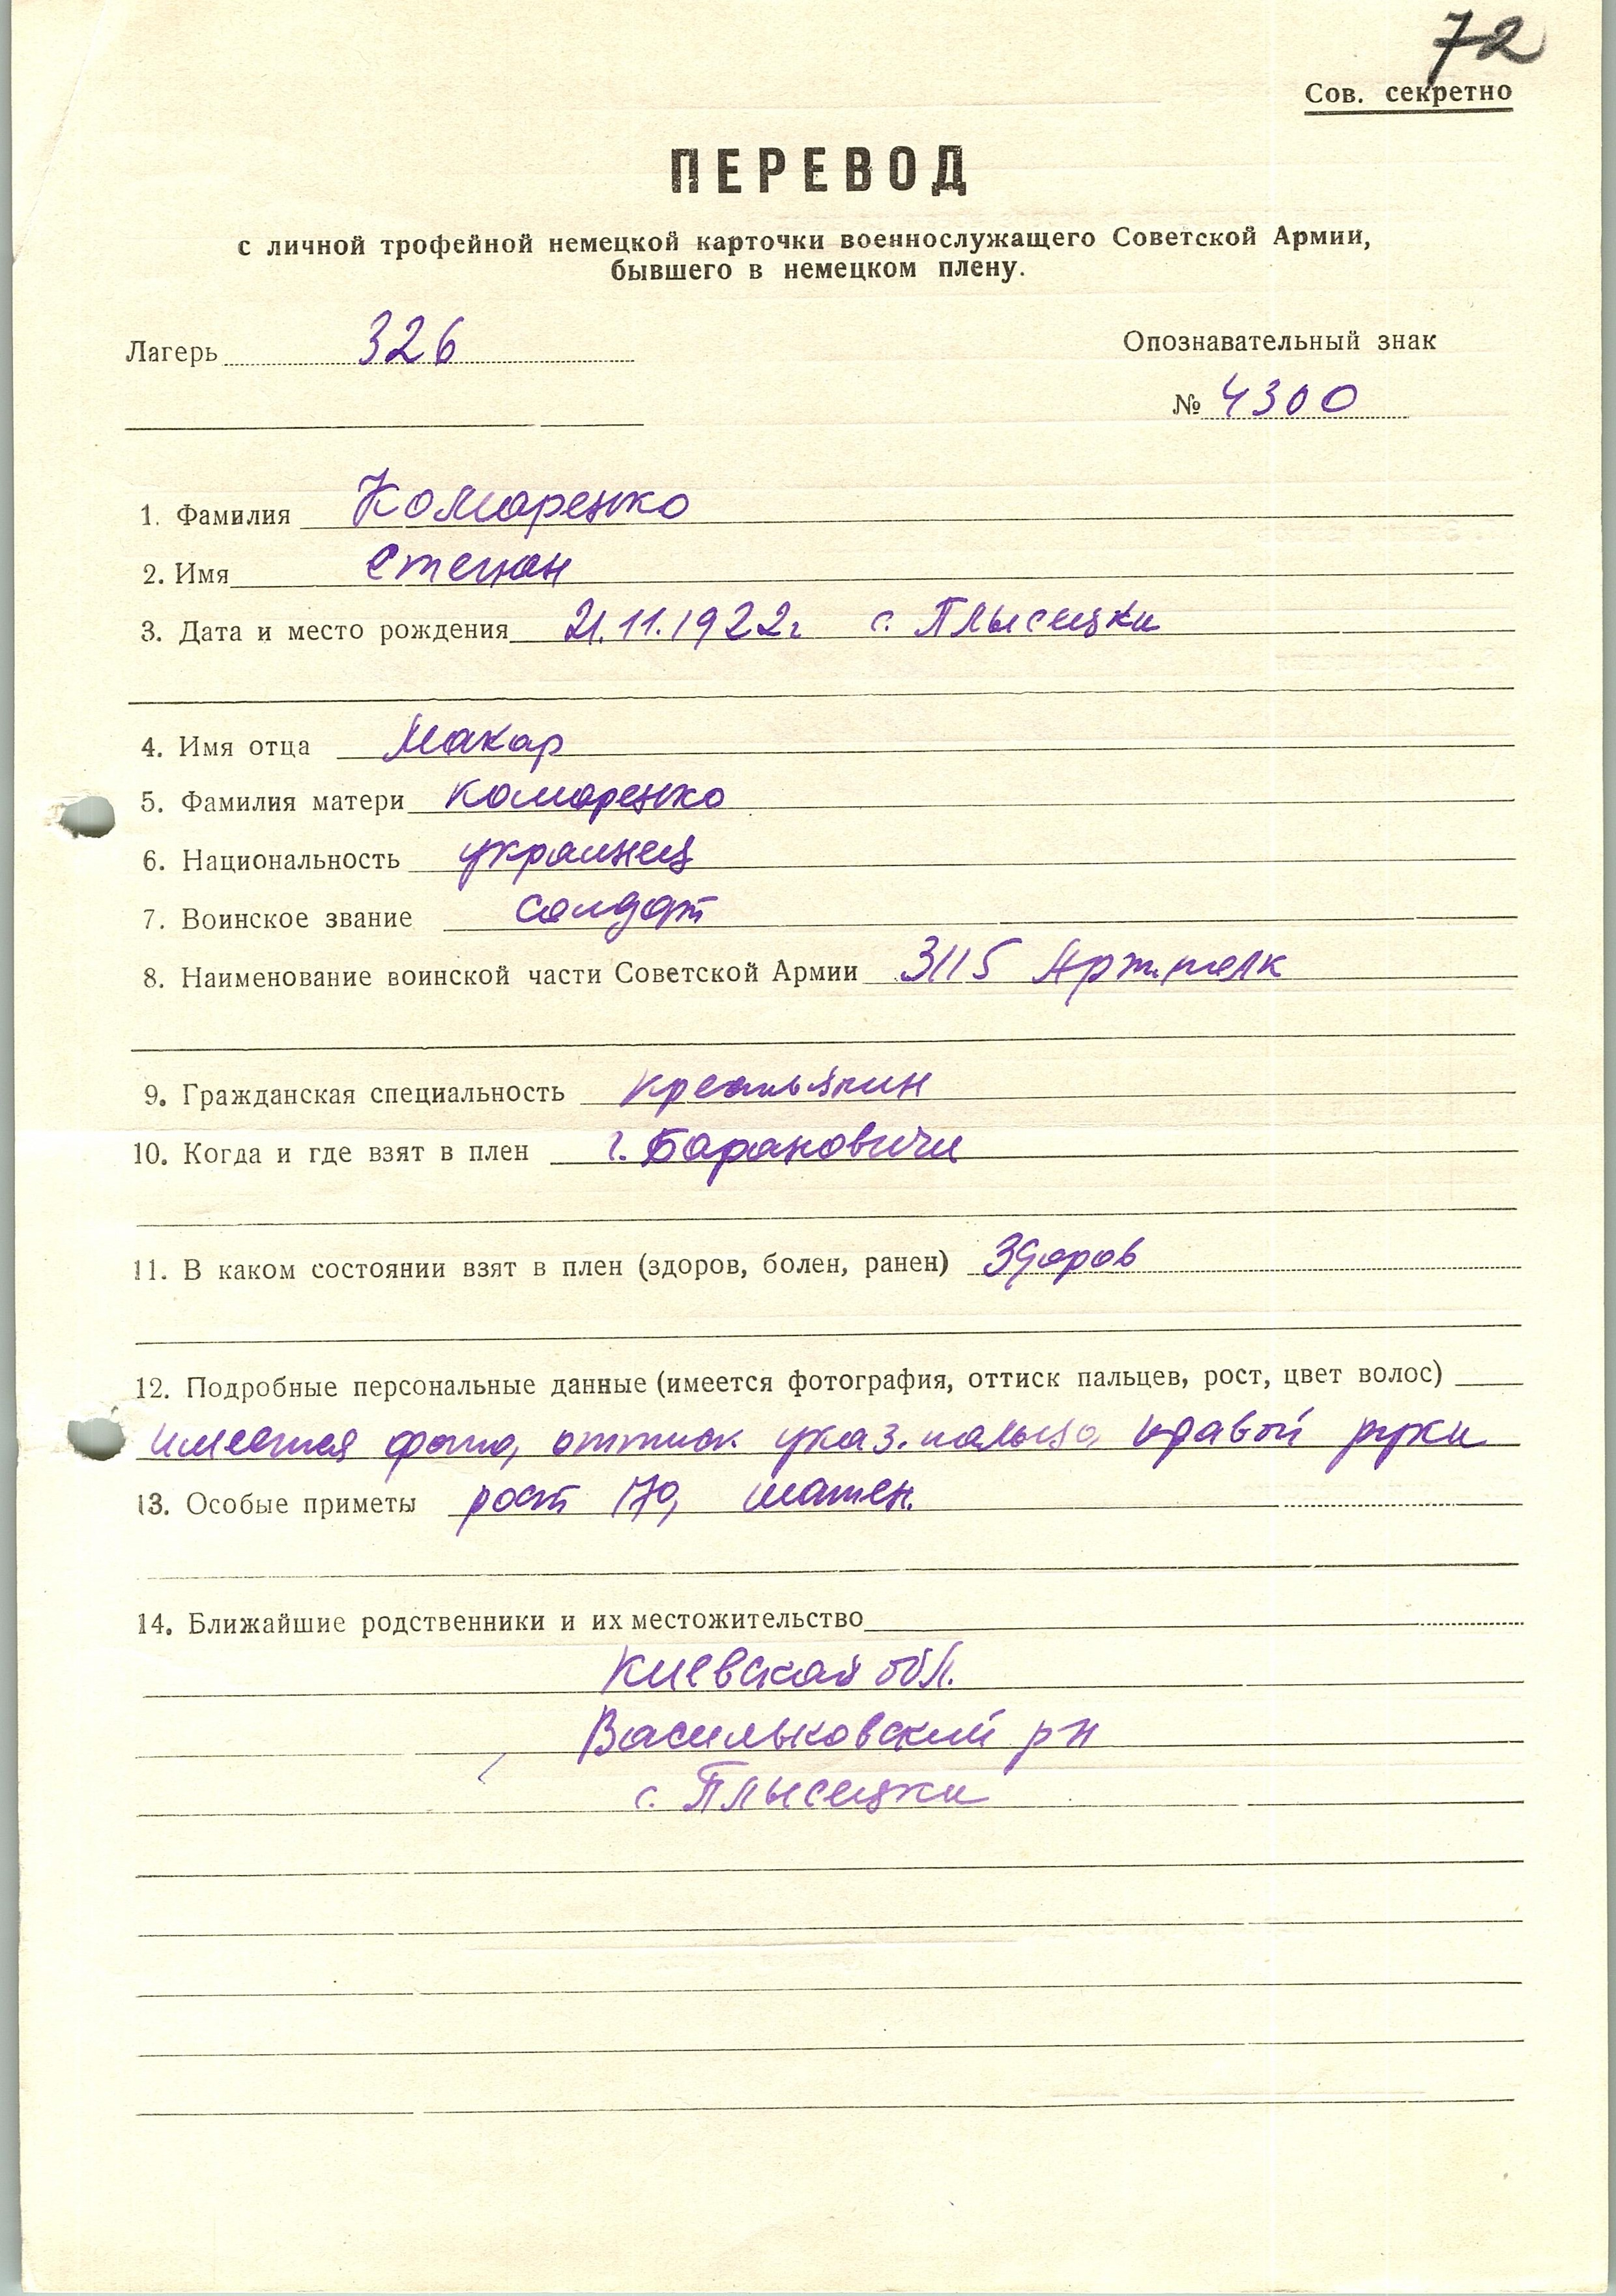 72
Сов. секретно
ПЕРЕВОД
с личной трофейной немецкой карточки военнослужащего Советской Армии,
бывшего в немецком плену.
Лагерь 326
Опознавательный знак
№ 4300
1. Фамилия Комаренко
2. Имя Степан
3. Дата и место рождения 21.11.1922г с. Плысецки
4. Имя отца Макар
5. Фамилия матери Комаренко
6. Национальность украинец
7. Воинское звание солдат
8. Наименование воинской части Советской Армии 3115 Арт.полк
9. Гражданская специальность крестьянин
10. Когда и где взят в плен г. Барановичи
11. В каком состоянии взят в плен (здоров, болен, ранен) Здоров
12. Подробные персональные данные (имеется фотография, оттиск пальцев, рост, цвет волос)
имеется фото, оттиск указ. пальца правой руки
13. Особые приметы рост 170, шатен.
14. Ближайшие родственники и их местожительство
Киевская обл.
Васильковский р-н
с. Плысецки